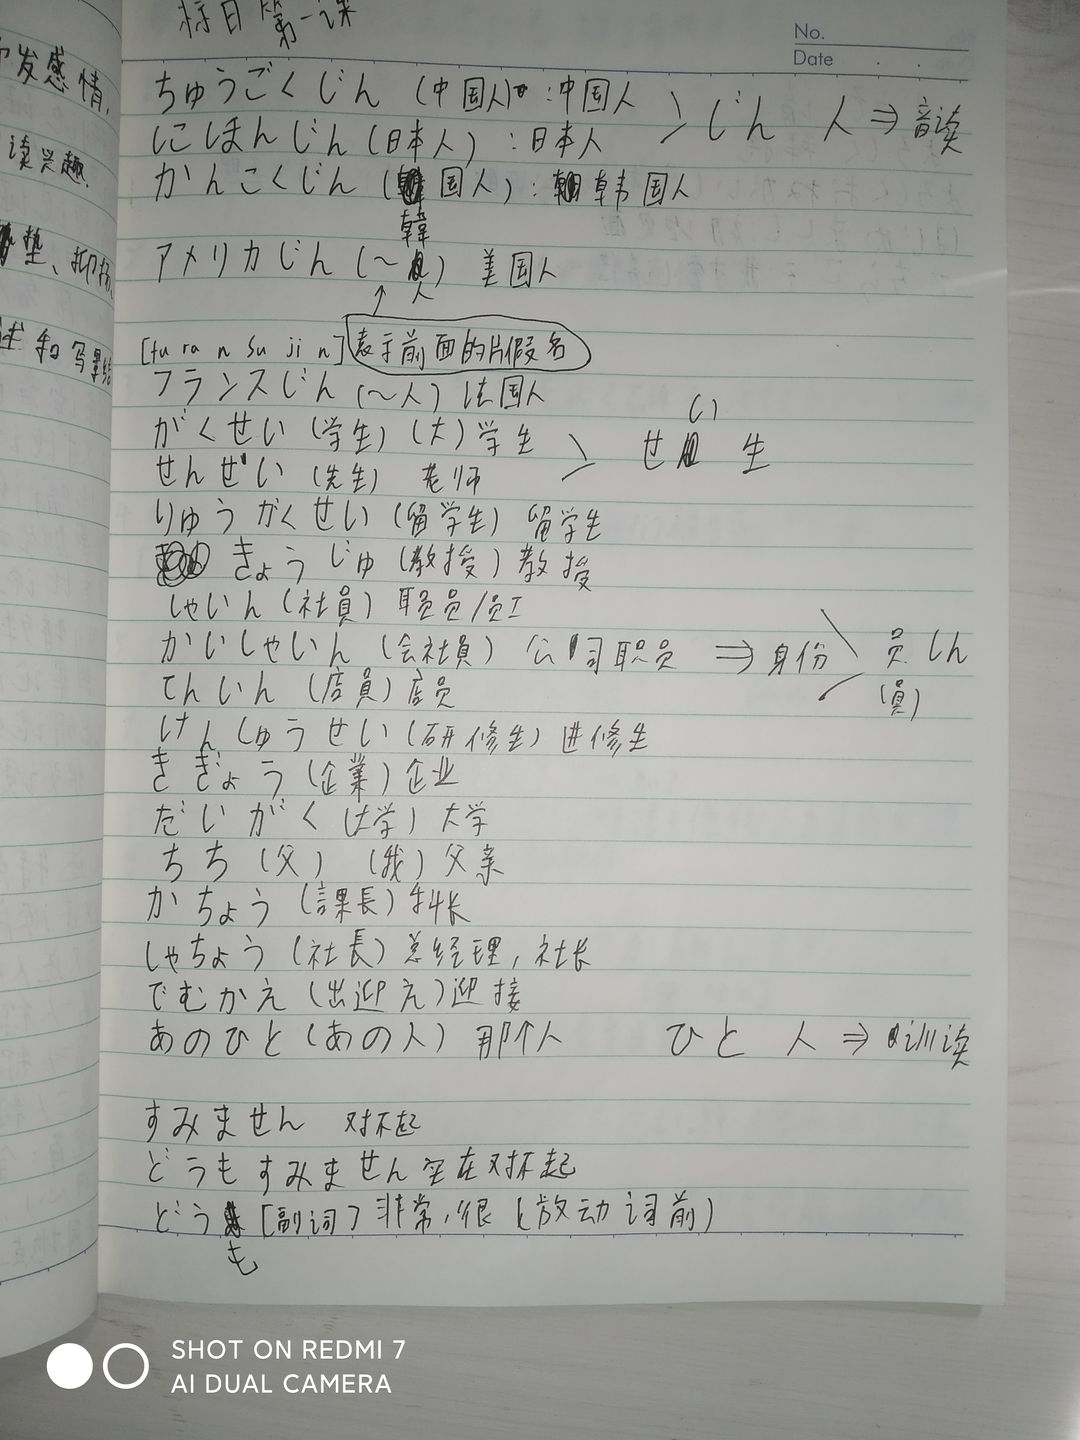 标日第一课
No.
Date
ちゅうごくじん (中国人) : 中国人 > じん 人 ⇒ 音读
にほんじん (日本人) : 日本人
かんこくじん (韓国人) : 韩国人
アメリカじん (～人) 美国人
[fu ra n su ji n] 表示前面的片假名
フランスじん (～人) 法国人
がくせい (学生) (大)学生 > せい 生
せんぜい (先生) 老师
りゅうがくせい (留学生) 留学生
きょうじゅ (教授) 教授
しゃいん (社員) 职员/员工
かいしゃいん (会社員) 公司职员 ⇒ 身份 员 しん
(員)
てんいん (店員) 店员
けんしゅうせい (研修生) 进修生
きぎょう (企業) 企业
だいがく (大学) 大学
ちち (父) (我)父亲
かちょう (課長) 科长
しゃちょう (社長) 总经理, 社长
でむかえ (出迎え) 迎接
あのひと (あの人) 那个人 ひと 人 ⇒ 训读
すみません 对不起
どうもすみません 实在对不起
どうも [副词] 非常, 很 (放动词前)
发感情,
读兴趣.
垫、抑扬,
SHOT ON REDMI 7
AI DUAL CAMERA